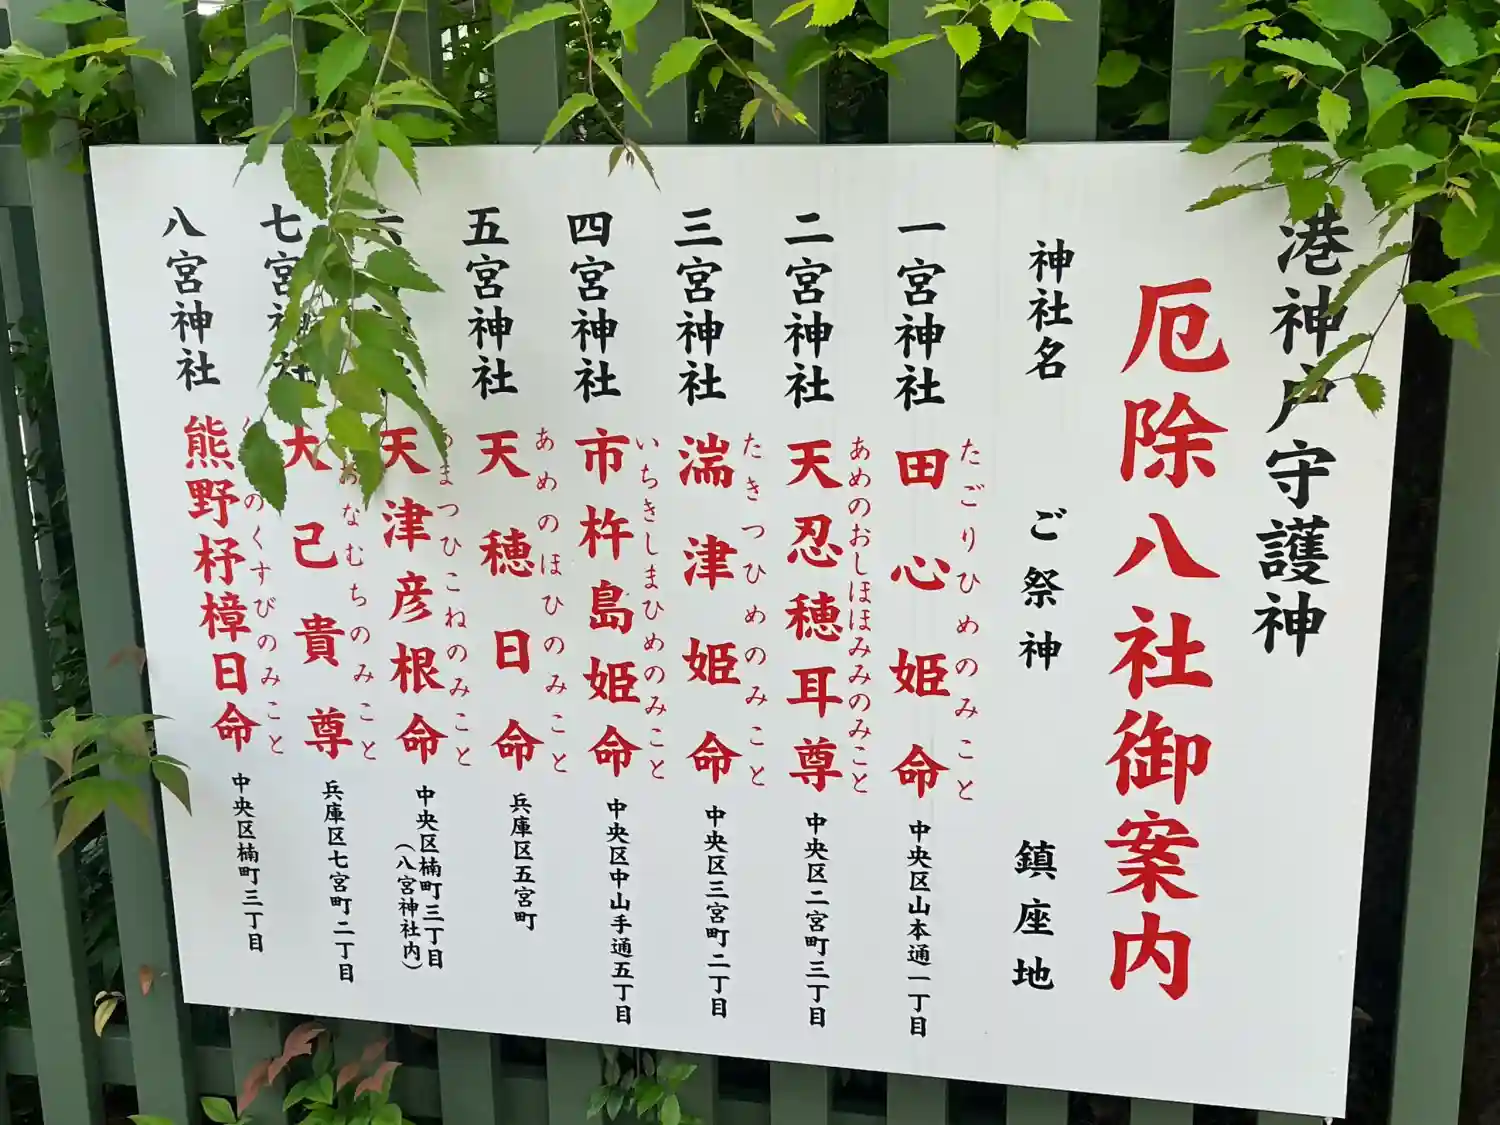 港神戸守護神
厄除八社御案内
神社名 ご祭神 鎮座地
一宮神社 田心姫命 中央区山本通一丁目
たごりひめのみこと
二宮神社 天忍穂耳尊 中央区二宮町三丁目
あめのおしほほみみのみこと
三宮神社 湍津姫命 中央区三宮町二丁目
たきつひめのみこと
四宮神社 市杵島姫命 中央区中山手通五丁目
いちきしまひめのみこと
五宮神社 天穂日命 兵庫区五宮町
あめのほひのみこと
六 天津彦根命 中央区楠町三丁目
まつひこねのみこと
(八宮神社内)
七宮神社 大己貴尊 兵庫区七宮町二丁目
なむちのみこと
八宮神社 熊野杼樟日命 中央区楠町三丁目
のくすびのみこと